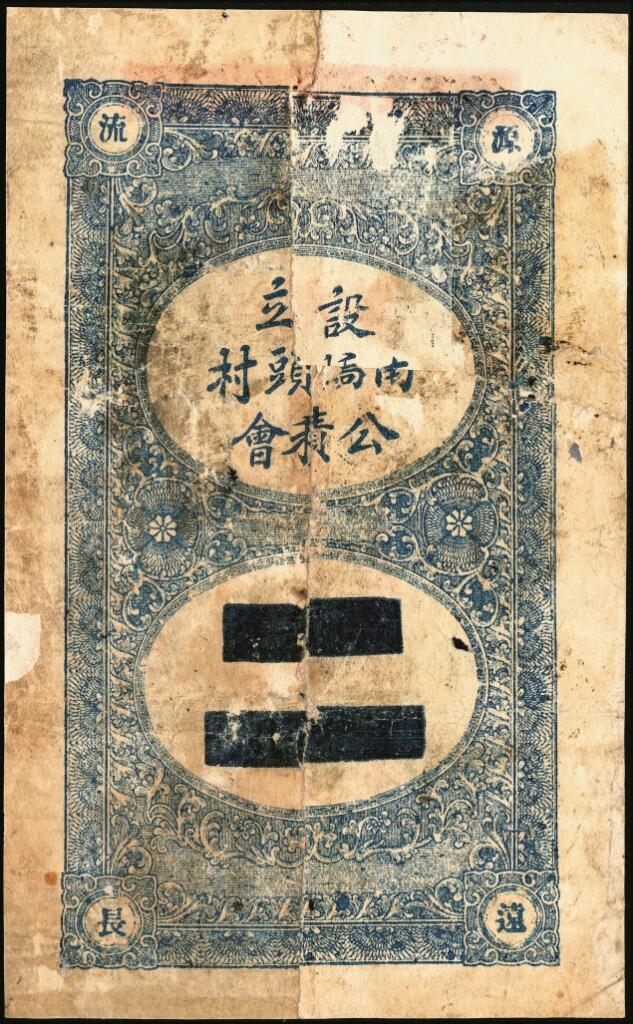 源流
設立
南橋頭村
公積會
遠長